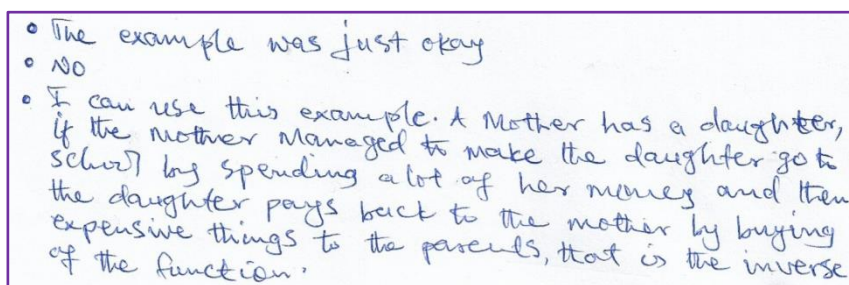 • The example was just okay
• NO
• I can use this example. A Mother has a daughter,
if the Mother Managed to make the daughter go to
school by spending a lot of her money and then
the daughter pays back to the mother by buying
expensive things to the parents, that is the inverse
of the function.